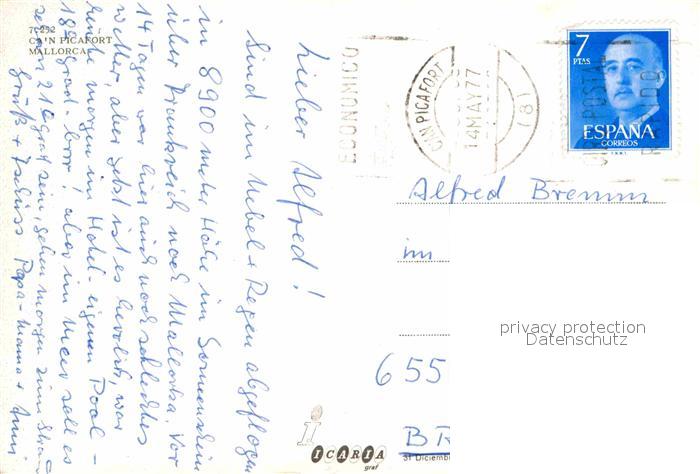 70292
CA'N PICAFORT
MALLORCA
Lieber Alfred!
Sind im Nebel + Regen abgeflogen
in 8900 meter Höhe im Sonnenschein
über Frankreich nach Mallorka. Vor
14 Tagen war hier auch noch schlechtes
wetter, aber jetzt ist es herrlich, war
heute morgen im Hotel-eigenen Pool -
18 grad - brr! aber im Meer soll es
21 grad sein, gehen morgen zum
Gruß + Papa - Mama +
ECONOMICO
CA'N PICAFORT
14 MAY 77
(8)
POSTAL
RAPIDO
7
PTAS
ESPAÑA
CORREOS
F.N.M.T.
Alfred Bremm
im
655
BR
privacy protection
Datenschutz
i
ICARIA
graf
31 Diciemb